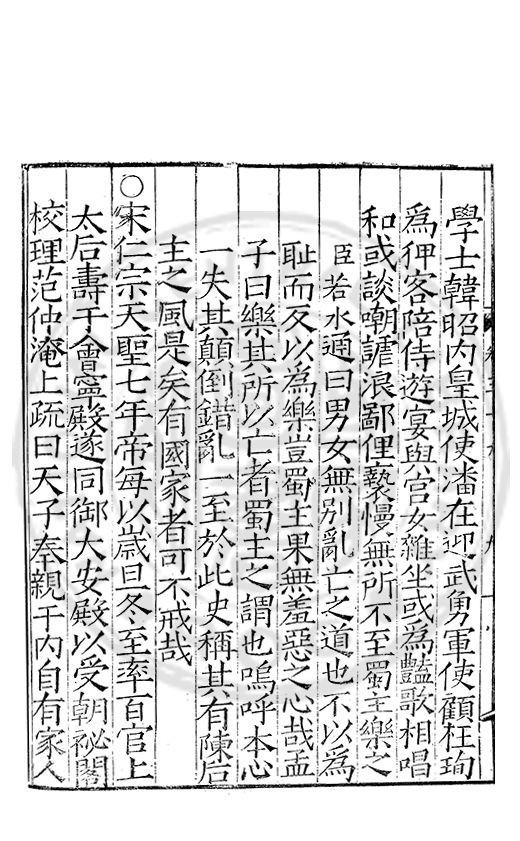 學士韓昭内皇城使潘在迎武勇軍使顧在珣
爲狎客陪侍遊宴與宫女雜坐或爲豔歌相唱
和或談嘲謔浪鄙俚褻慢無所不至蜀主樂之
臣若水通曰男女無別亂亡之道也不以爲
恥而反以爲樂豈蜀主果無羞惡之心哉孟
子曰樂其所以亡者蜀主之謂也嗚呼本心
一失其顛倒錯亂一至於此史稱其有陳后
主之風是矣有國家者可不戒哉
○宋仁宗天聖七年帝每以歲旦冬至率百官上
太后壽于會寧殿遂同御大安殿以受朝祕閣
校理范仲淹上疏曰天子奉親于内自有家人